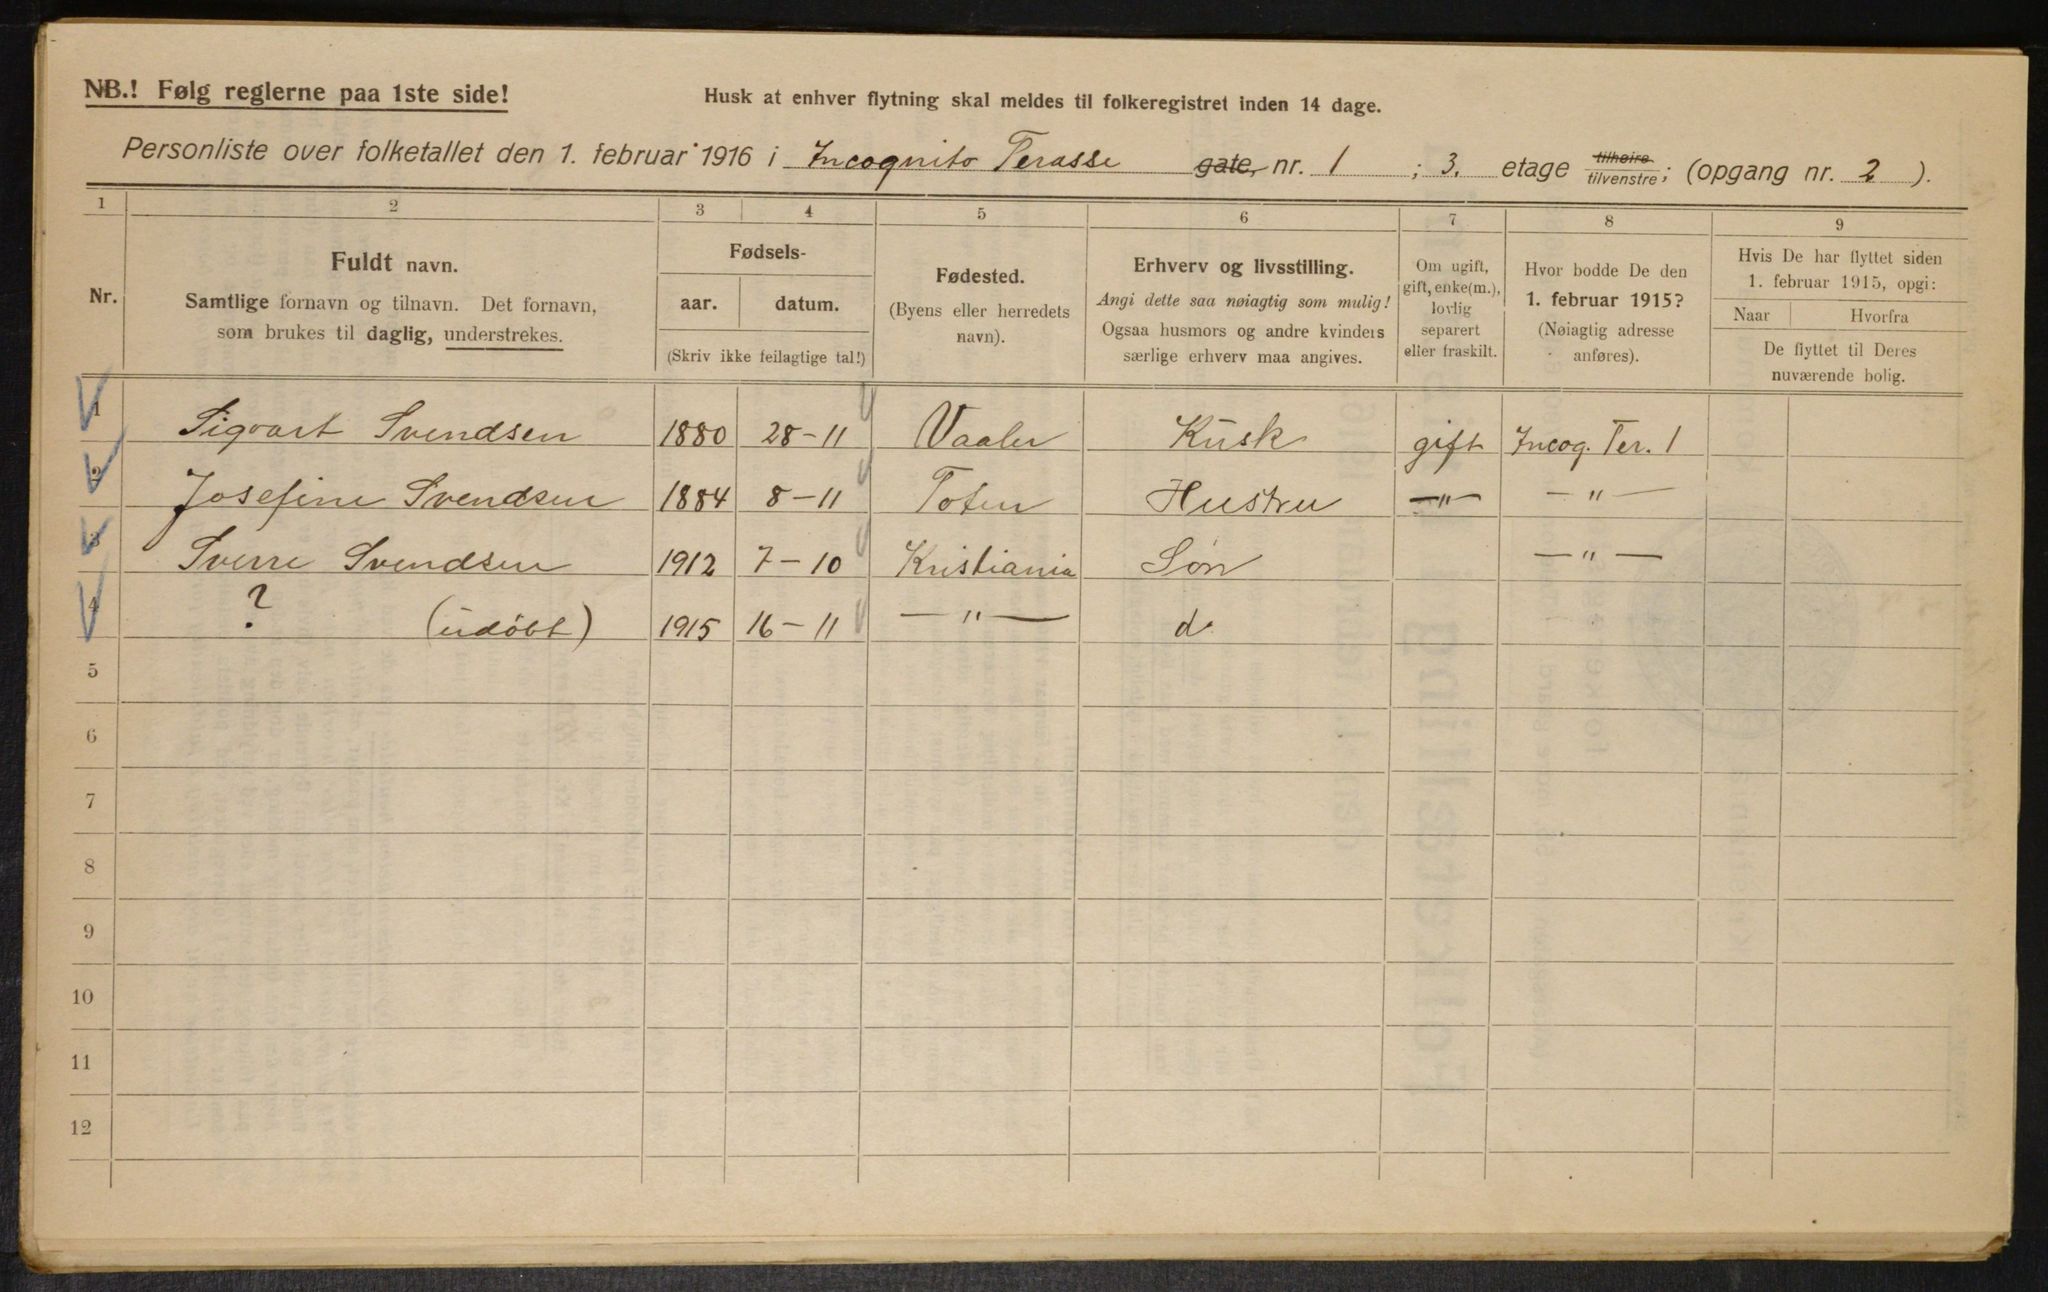 NB.! Følg reglerne paa 1ste side!
Husk at enhver flytning skal meldes til folkeregistret inden 14 dage.
Personliste over folketallet den 1. februar 1916 i Incognito Terasse gate, nr. 1 ; 3. etage tilhøire tilvenstre; (opgang nr. 2 ).
1 2 3 4 5 6 7 8 9
Nr.
Fuldt navn.
Samtlige fornavn og tilnavn. Det fornavn,
som brukes til daglig, understrekes.
Fødsels-
aar. datum.
(Skriv ikke feilagtige tal!)
Fødested.
(Byens eller herredets
navn).
Erhverv og livsstilling.
Angi dette saa nøiagtig som mulig!
Ogsaa husmors og andre kvinders
særlige erhverv maa angives.
Om ugift,
gift, enke(m.),
lovlig
separert
eller fraskilt.
Hvor bodde De den
1. februar 1915?
(Nøiagtig adresse
anføres).
Hvis De har flyttet siden
1. februar 1915, opgi:
Naar Hvorfra
De flyttet til Deres
nuværende bolig.
1 Sigvart Svendsen 1880 28-11 Vaaler Kusk gift Incog. Ter. 1
2 Josefine Svendsen 1884 8-11 Toten Hustru —"— —"—
3 Sverre Svendsen 1912 7-10 Kristiania Søn —"—
4 ? (udöbt) 1915 16-11 —"— d.
5
6
7
8
9
10
11
12